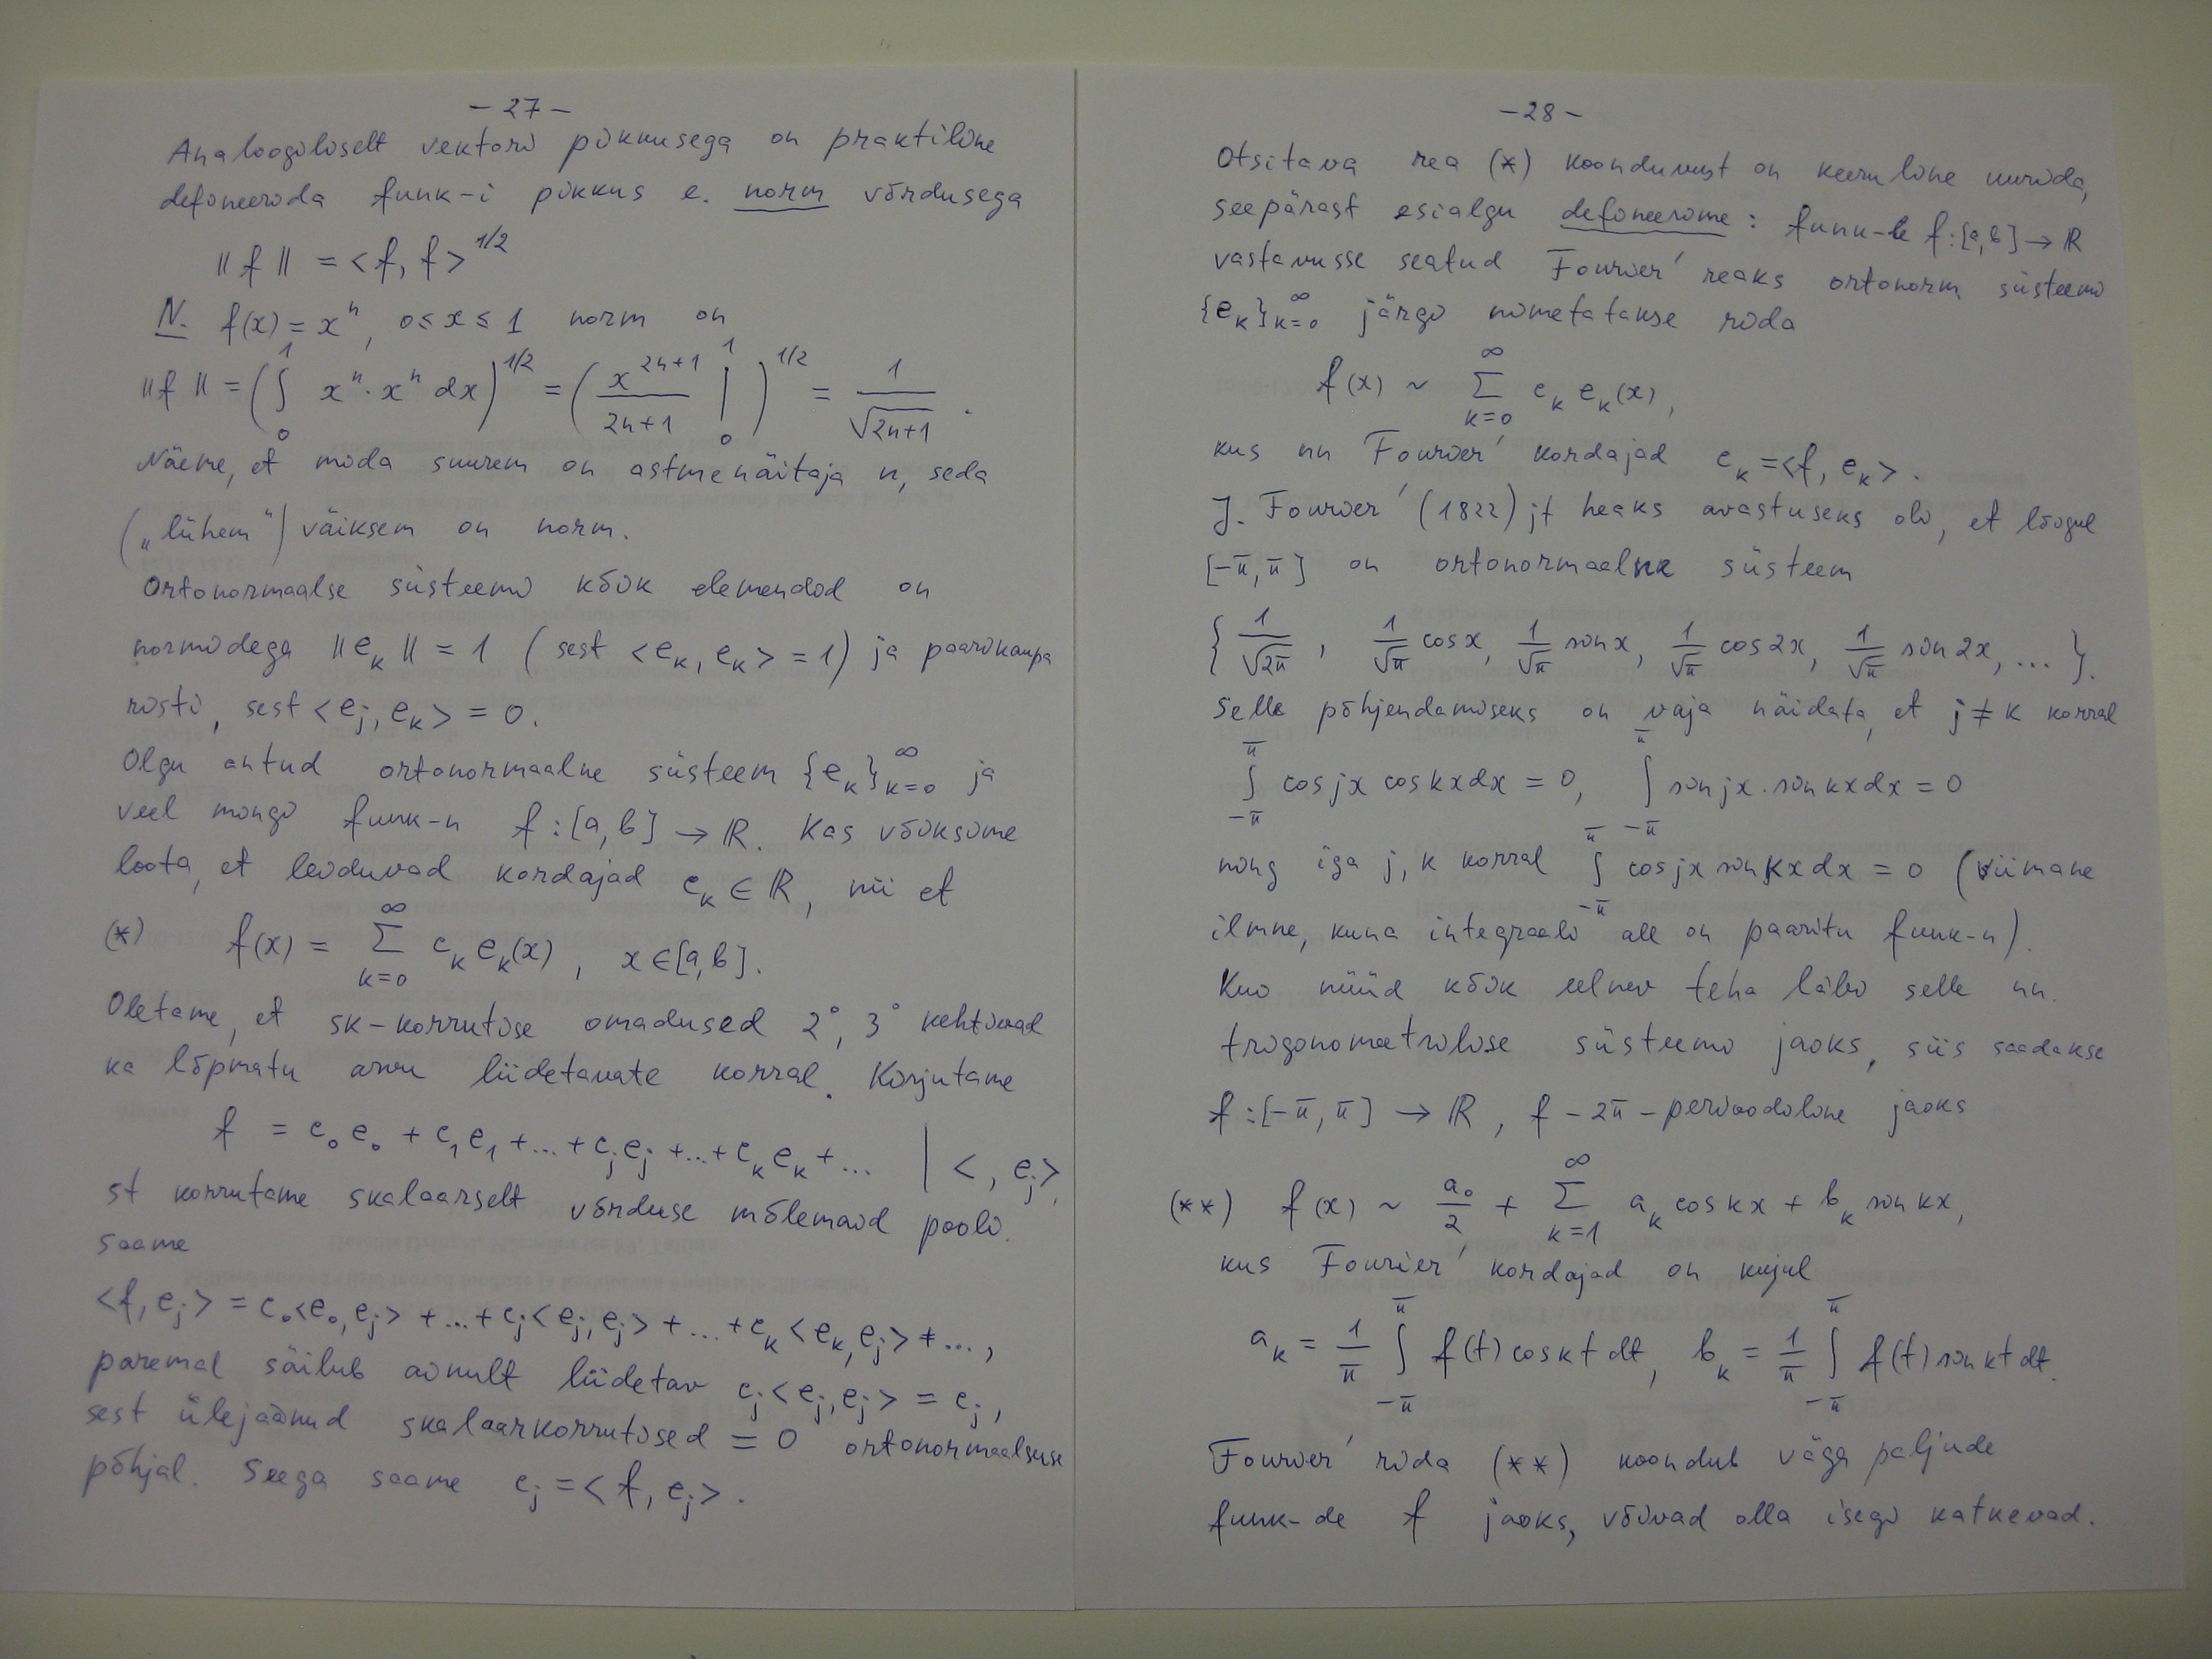 - 27 -
Analoogiliselt vektori pikkusega on praktiline
defineerida funk-i pikkus e. norm võrdusega
‖f‖ = <f, f>^{1/2}
N. f(x) = x^n, 0 ≤ x ≤ 1 norm on
‖f‖ = (∫_0^1 x^n · x^n dx)^{1/2} = (x^{2n+1}/(2n+1) |_0^1)^{1/2} = 1/√(2n+1).
Näeme, et mida suurem on astmenäitaja n, seda
(„lühem") väiksem on norm.
Ortonormaalse süsteemi kõik elemendid on
normidega ‖e_k‖ = 1 (sest <e_k, e_k> = 1) ja paarikaupa
risti, sest <e_j, e_k> = 0.
Olgu antud ortonormaalne süsteem {e_k}_{k=0}^∞ ja
veel mingi funk-n f : [a, b] → ℝ. Kas võiksime
loota, et leiduvad kordajad c_k ∈ ℝ, nii et
(*) f(x) = ∑_{k=0}^∞ c_k e_k(x), x ∈ [a, b].
Oletame, et sk-korrutise omadused 2°, 3° kehtivad
ka lõpmatu arvu liidetavate korral. Kirjutame
f = c_0 e_0 + c_1 e_1 + ... + c_j e_j + ... + c_k e_k + ... | < , e_j>,
st korrutame skalaarselt võrduse mõlemaid pooli.
Saame
<f, e_j> = c_0 <e_0, e_j> + ... + c_j <e_j, e_j> + ... + c_k <e_k, e_j> + ...,
paremal säilub ainult liidetav c_j <e_j, e_j> = c_j,
sest ülejäänud skalaarkorrutised = 0 ortonormaalsuse
põhjal. Seega saame c_j = <f, e_j>.
- 28 -
Otsitava rea (*) koonduvust on keeruline uurida,
seepärast esialgu defineerime : funk-le f : [a, b] → ℝ
vastavusse seatud Fourier' reaks ortonorm. süsteemi
{e_k}_{k=0}^∞ järgi nimetatakse rida
f(x) ~ ∑_{k=0}^∞ c_k e_k(x),
kus nn Fourier' kordajad c_k = <f, e_k>.
J. Fourier' (1822) jt heaks avastuseks oli, et lõigul
[-π, π] on ortonormaalne süsteem
{1/√(2π), 1/√π cos x, 1/√π sin x, 1/√π cos 2x, 1/√π sin 2x, ... }.
Selle põhjendamiseks on vaja näidata, et j ≠ k korral
∫_{-π}^{π} cos jx cos kx dx = 0, ∫_{-π}^{π} sin jx · sin kx dx = 0
ning iga j, k korral ∫_{-π}^{π} cos jx sin kx dx = 0 (viimane
ilmne, kuna integraali all on paaritu funk-n).
Kui nüüd kõik eelnev teha läbi selle nn.
trigonomeetrilise süsteemi jaoks, siis saadakse
f : [-π, π] → ℝ, f - 2π - perioodiline jaoks
(**) f(x) ~ a_0/2 + ∑_{k=1}^∞ a_k cos kx + b_k sin kx,
kus Fourier' kordajad on kujul
a_k = 1/π ∫_{-π}^{π} f(t) cos kt dt, b_k = 1/π ∫_{-π}^{π} f(t) sin kt dt.
Fourier' rida (**) koondub väga paljude
funk-de f jaoks, võivad olla isegi katkevad.